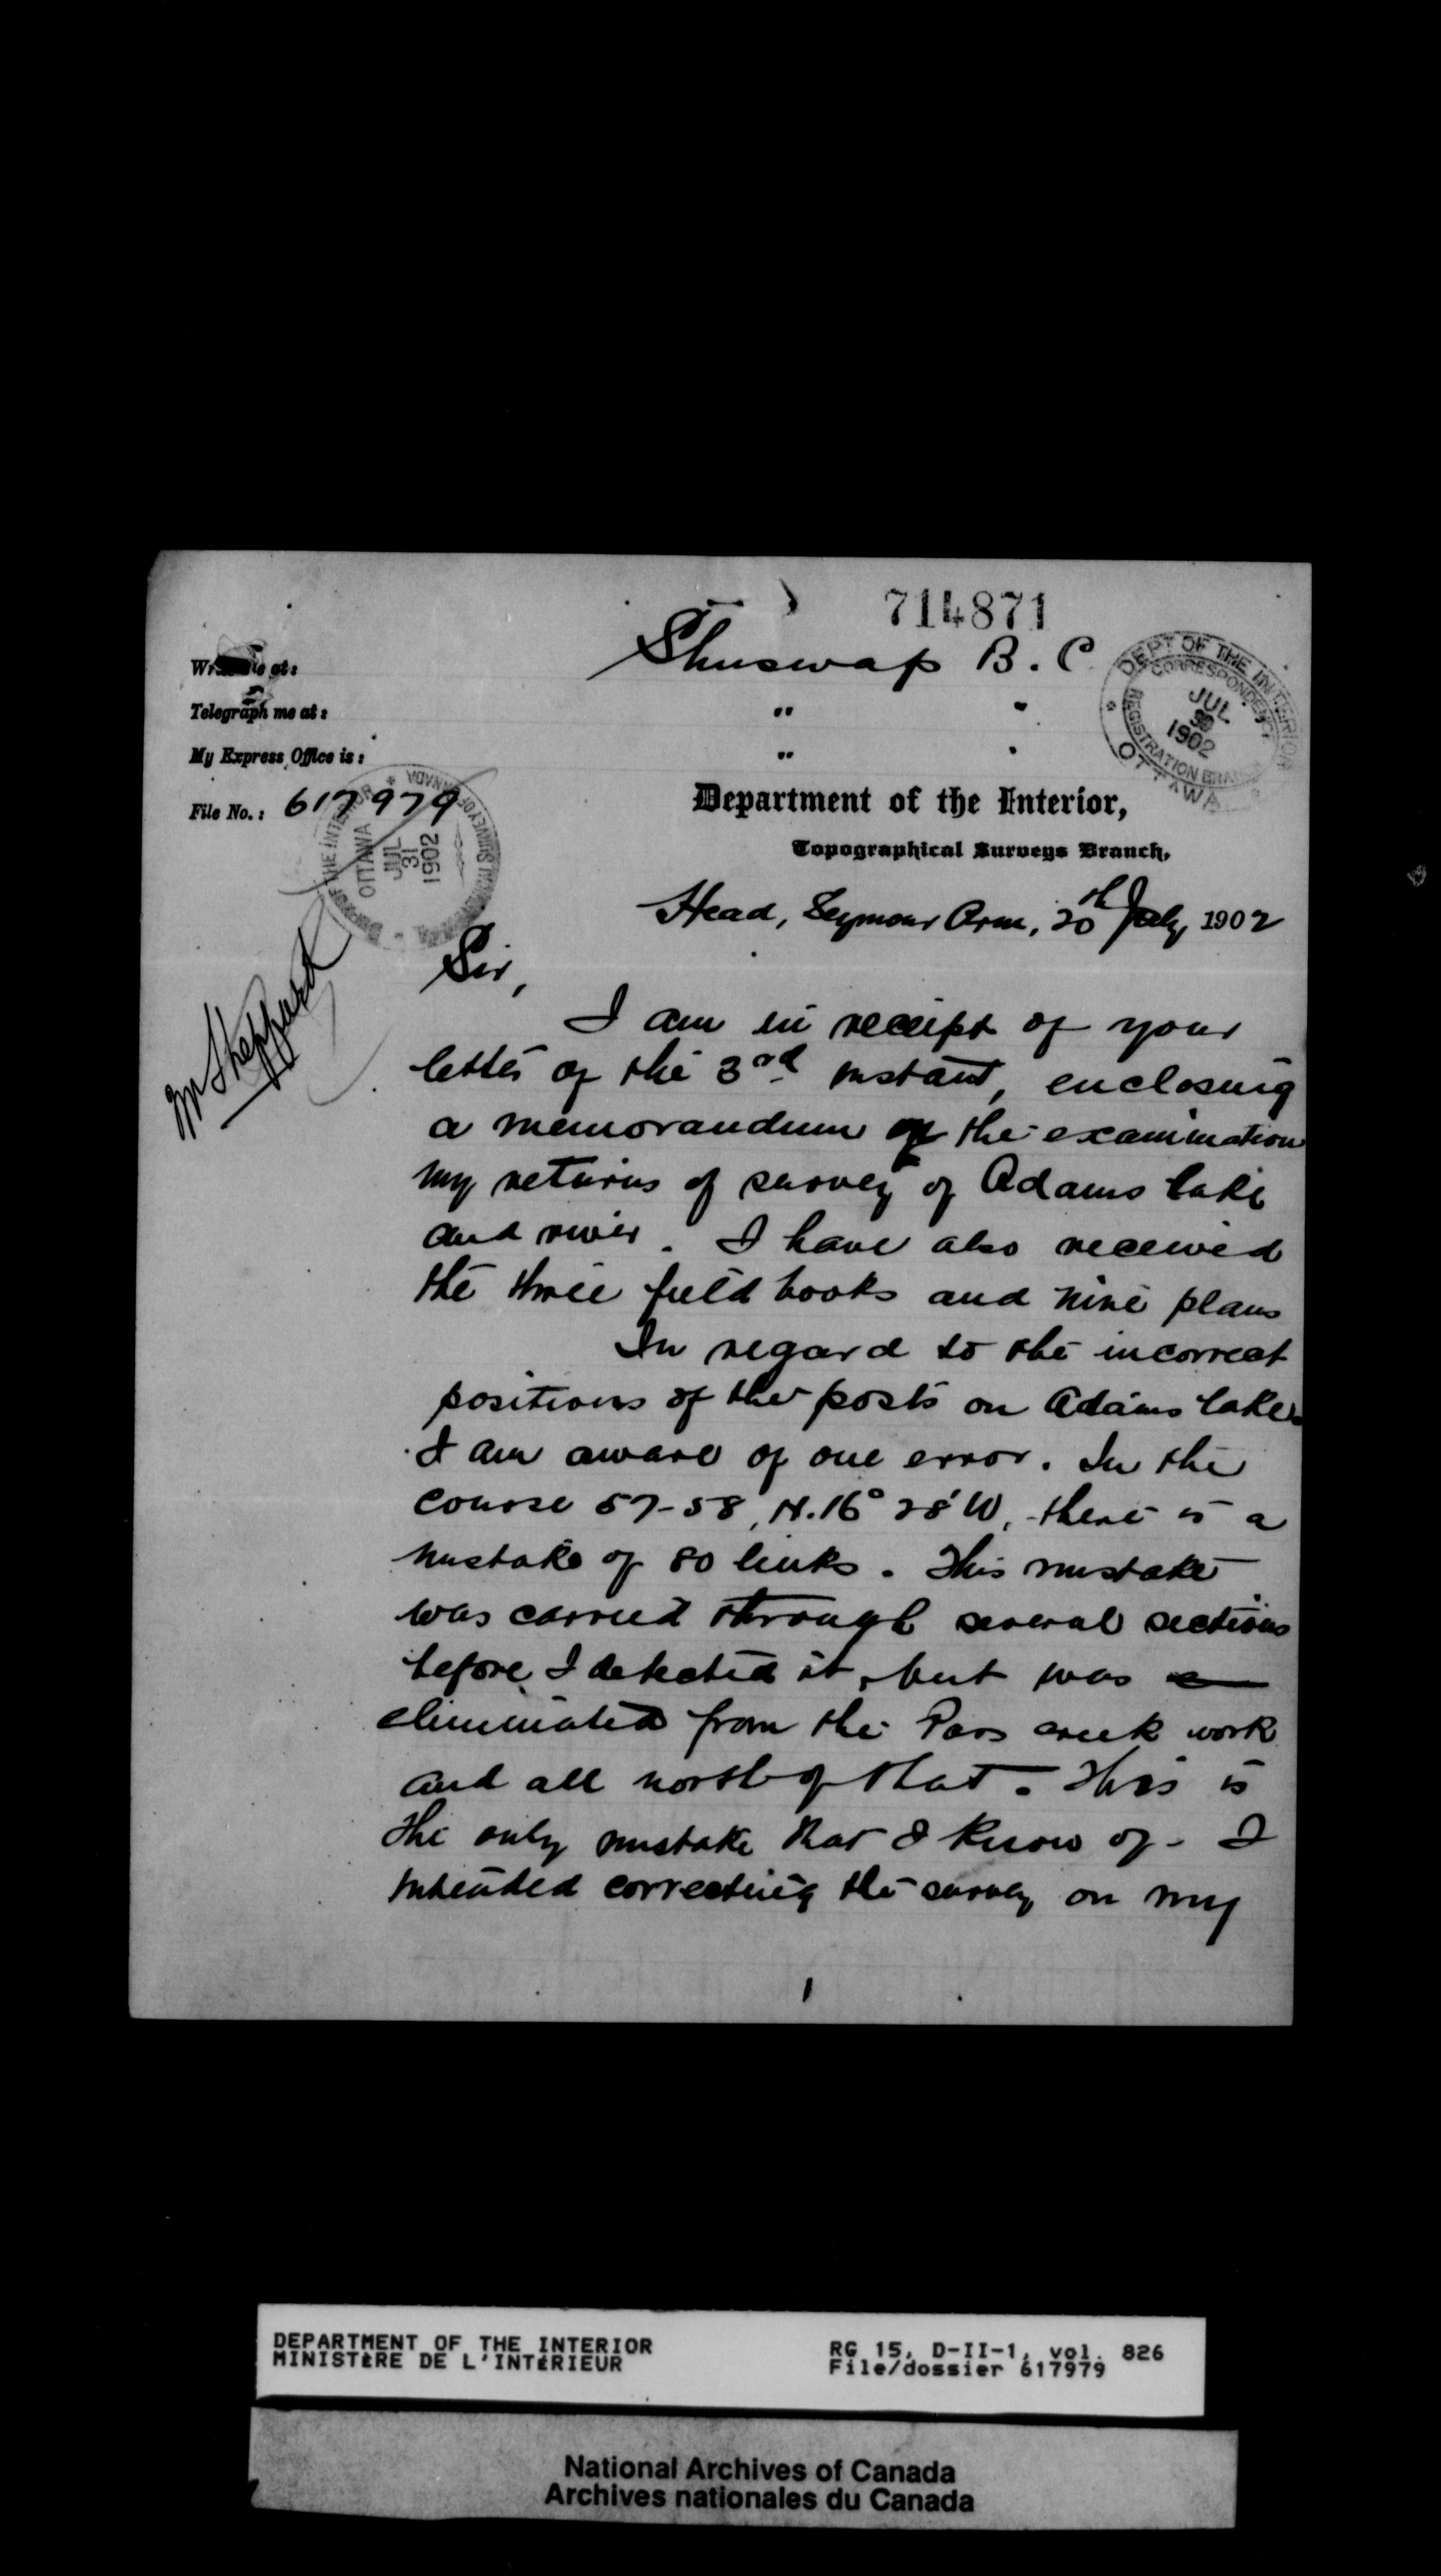 714871
Write me at: Shuswap B. C.
Telegraph me at: " "
My Express Office is: " "
File No.: 617979
DEPT OF THE INTERIOR
CORRESPONDENCE
JUL
30
1902
REGISTRATION BRANCH
OTTAWA
OTTAWA
JUL
31
1902
Department of the Interior,
Topographical Surveys Branch,
Head, Seymour Arm, 20th July, 1902
Mr Sheppard
Sir,
I am in receipt of your
letter of the 3rd instant, enclosing
a memorandum of the examination
my returns of survey of Adams lake
and river. I have also received
the three field books and nine plans
In regard to the incorrect
positions of the posts on Adams lake.
I am aware of one error. In the
course 57-58, N. 16° 28' W, there is a
mistake of 80 links. This mistake
was carried through several sections
before I detected it, but was
eliminated from the Pass creek work
and all north of that. This is
the only mistake that I know of - I
intended correcting the survey on my
1
DEPARTMENT OF THE INTERIOR
MINISTÈRE DE L'INTÉRIEUR
RG 15, D-II-1, vol. 826
File/dossier 617979
National Archives of Canada
Archives nationales du Canada